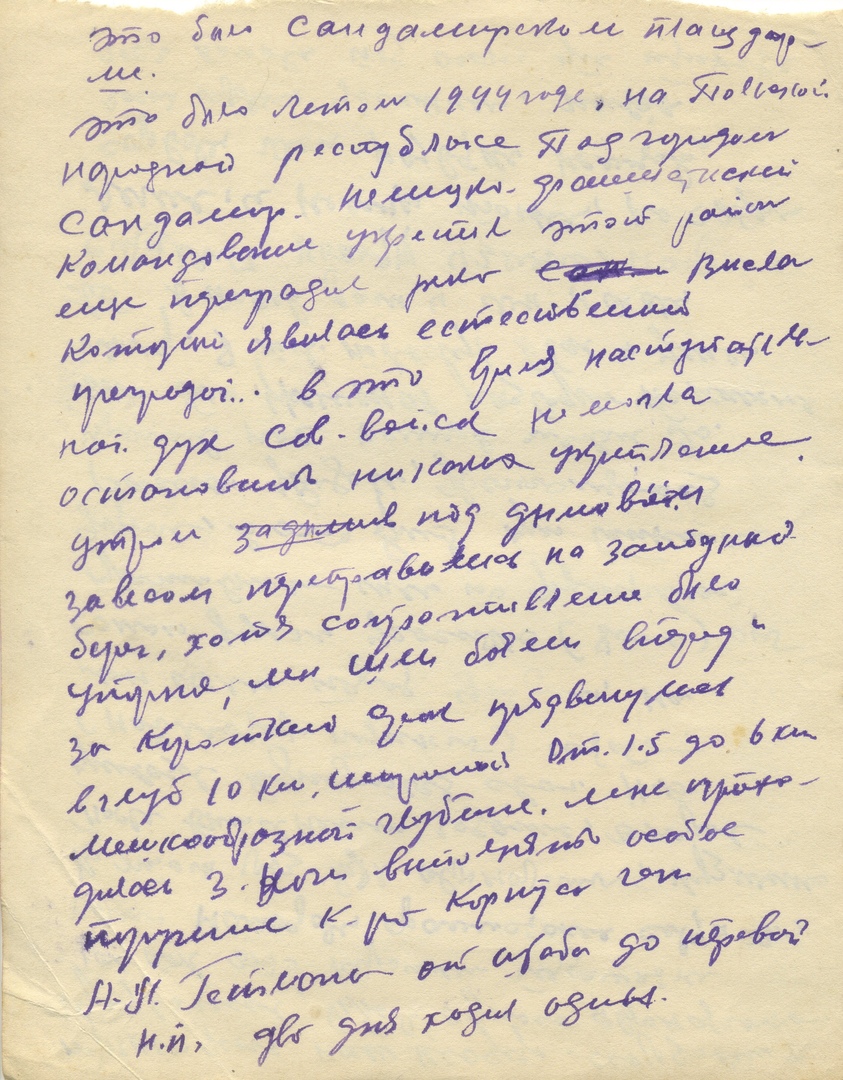 это было Сандамирском плацдар-
ме.
Это было летом 1944 годе, на Польской
народной республике под городом
Сандамир. Немецко-фашистский
командование укрепил этот район
еще преградил реко Висла
которой явилось естественной
преградой... в это время наступатель-
ной дух Сов-войск не могла
остановить никакие укрепление.
утром задымив под дымовой
завесом переправились на западной
берег, хотя сопротивление было
упорная, мы шли боями вперед"
за короткий срок продвинулись
в глуб 10 км, шириной от 1.5 до 6 км
мешкообразной глубине. мне прихо-
дилось 3 ночи выполнять особое
поручение к-ра корпуса ген
А.Л. Гетмана от штаба до первой
н.п, два дня ходил один.